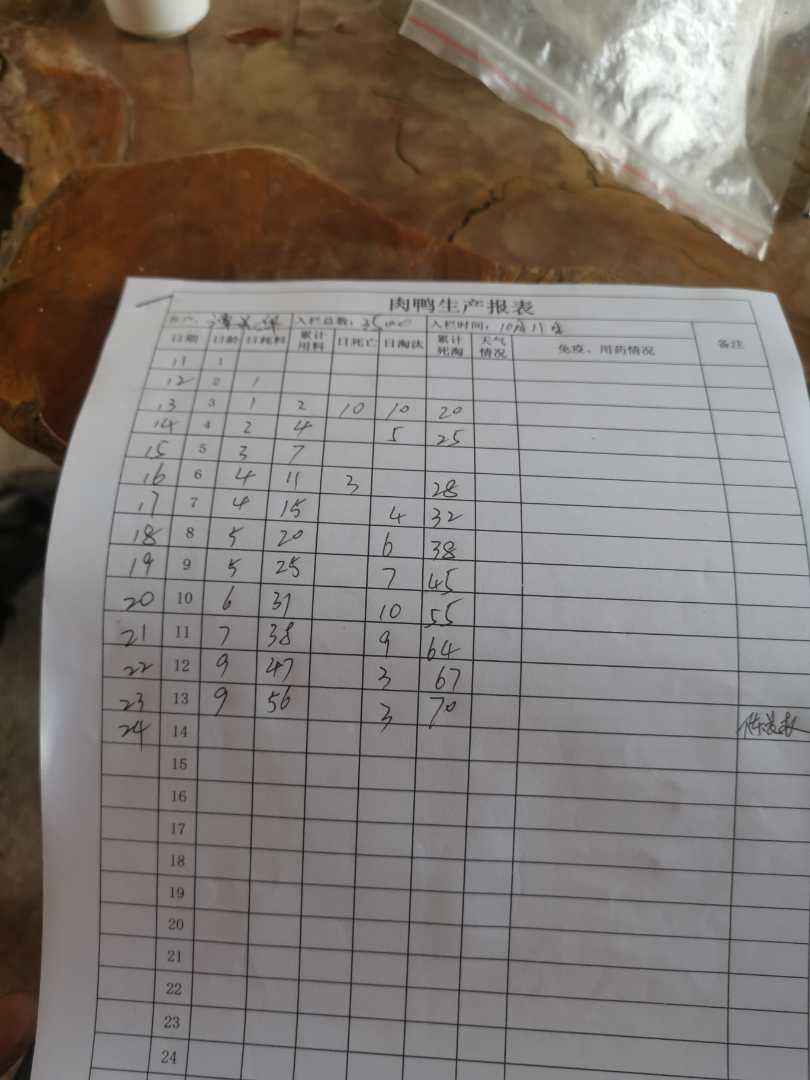 肉鸭生产报表
入栏总数：3500 入栏时间：10月11号
日期 日龄 日耗料 累计用料 日死亡 日淘汰 累计死淘 天气情况 免疫、用药情况 备注
11 1
12 2 1
13 3 1 2 10 10 20
14 4 2 4 5 25
15 5 3 7
16 6 4 11 3 28
17 7 4 15 4 32
18 8 5 20 6 38
19 9 5 25 7 45
20 10 6 31 10 55
21 11 7 38 9 64
22 12 9 47 3 67
23 13 9 56 3 70
24 14
15
16
17
18
19
20
21
22
23
24